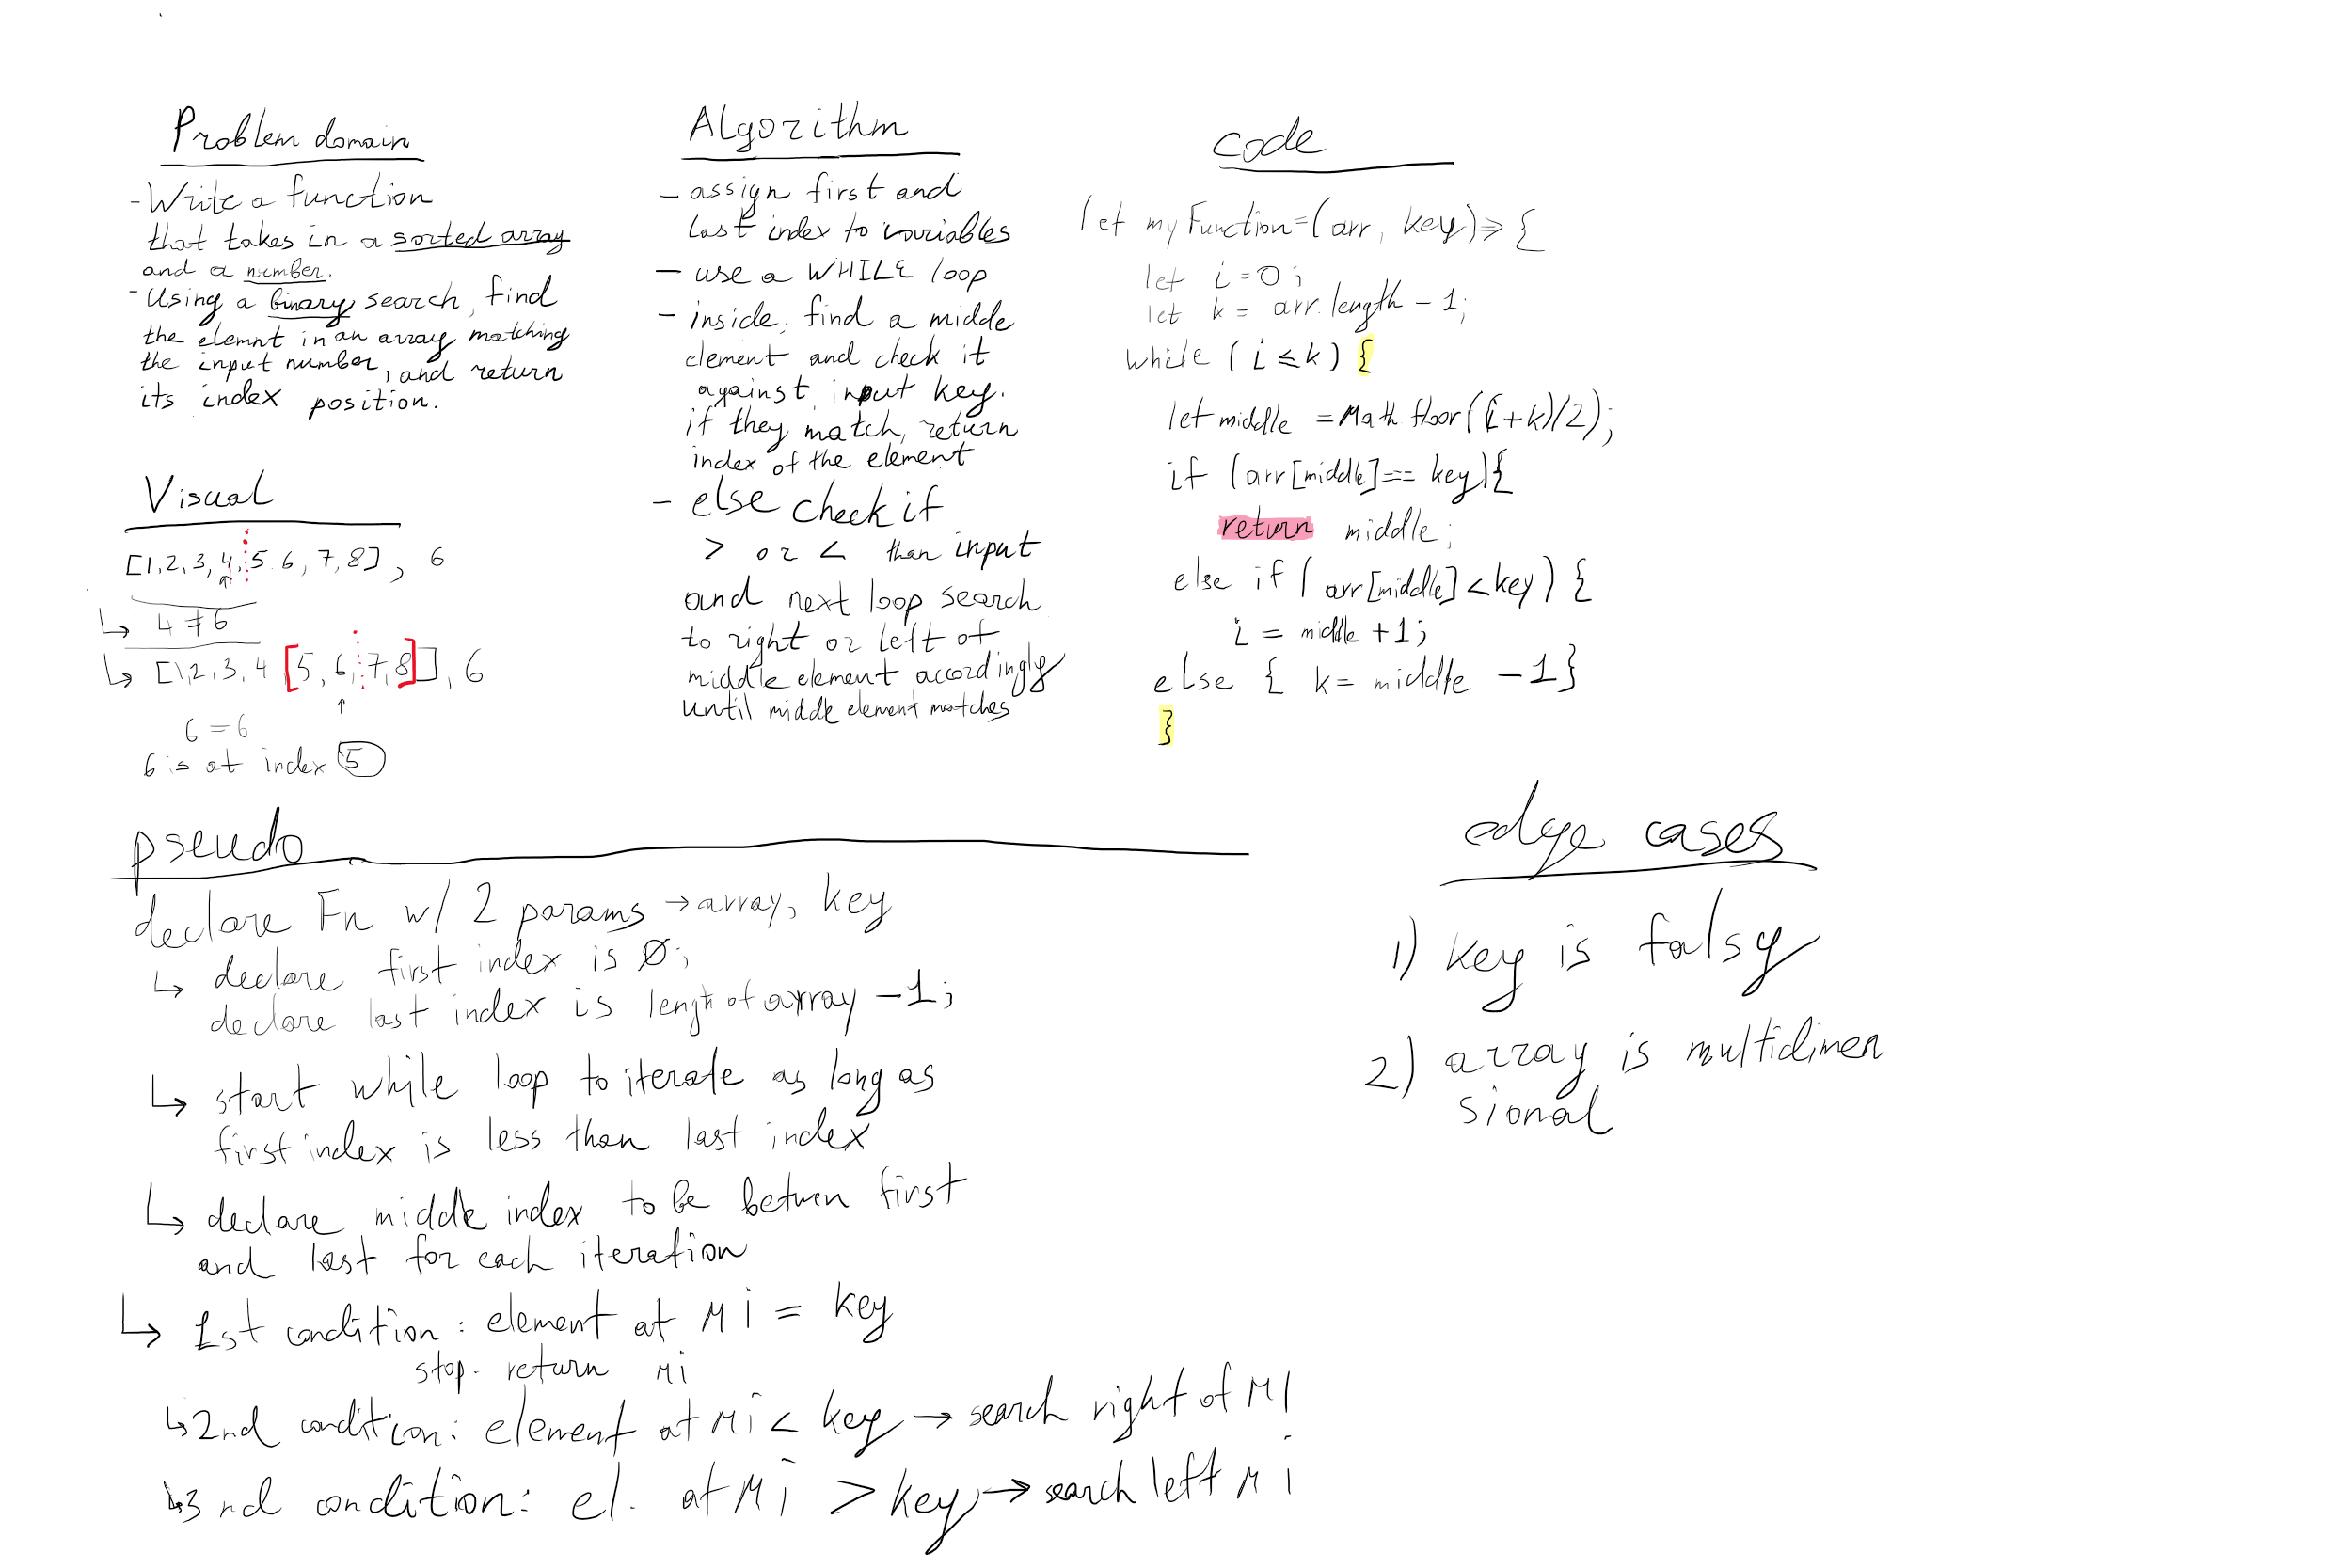 Problem domain
- Write a function
that takes in a sorted array
and a number.
- Using a binary search, find
the elemnt in an array matching
the input number, and return
its index position.
Visual
[1,2,3,4,5 6,7,8], 6
↳ 4≠6
↳ [1,2,3,4 [5,6,7,8]], 6
↑
6=6
6 is at index 5
Algorithm
- assign first and
last index to variables
- use a WHILE loop
- inside, find a midde
element and check it
against input key.
if they match, return
index of the element
- else check if
> or < than input
and next loop search
to right or left of
middle element accordingly
until middle element matches
code
let myFunction=(arr, key)=> {
let i=0;
let k= arr.length -1;
while (i≤k) {
let middle = Math.floor((i+k)/2);
if (arr[middle]=== key){
return middle;
else if (arr[middle]<key) {
i = middle +1;
else { k= middle -1}
}
pseudo
declare Fn w/ 2 params → array, key
↳ declare first index is 0;
declare last index is length of array -1;
↳ start while loop to iterate as long as
first index is less than last index
↳ declare middle index to be betwen first
and last for each iteration
↳ 1st condition: element at Mi = key
stop. return Mi
↳ 2nd condition: element at Mi < key → search right of MI
↳ 3nd condition: el. at Mi > key → search left Mi
edge cases
1) key is falsy
2) array is multidimen
sional